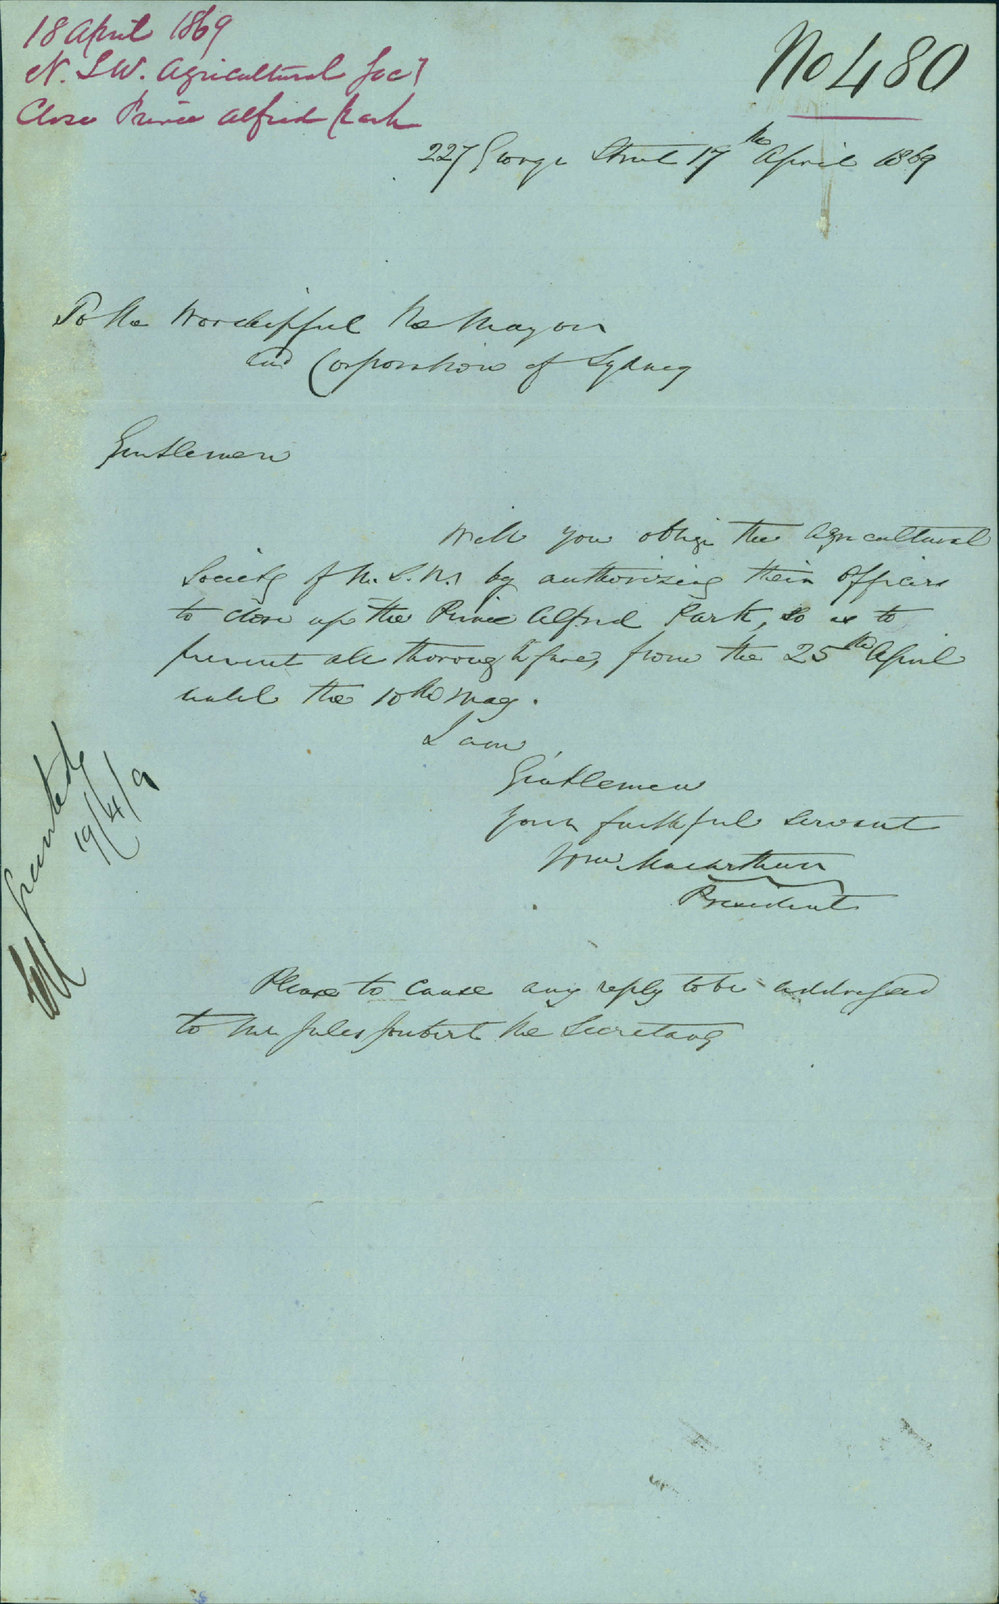 18 April 1869
N. S. W. Agricultural Socy
Close Prince Alfred Park
No 480
227 George Street 17th April 1869
To the Worshipful the Mayor
and Corporation of Sydney
Gentlemen
Will you oblige the Agricultural
Society of N. S. W. by authorizing their Officers
to close up the Prince Alfred Park, so as to
prevent all thoroughfare, from the 25th April
until the 10th May.
I am,
Gentlemen
Your faithful Servant
Wm Macarthur
President
Granted
19/4/9
Please to cause any reply to be addressed
to Mr Jules Joubert the Secretary